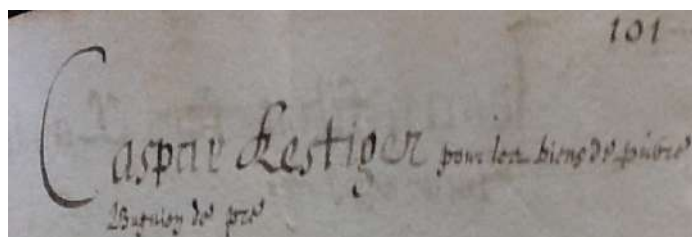 101
Caspar Kestiger pour les biens de pierre
Bugnion de pre